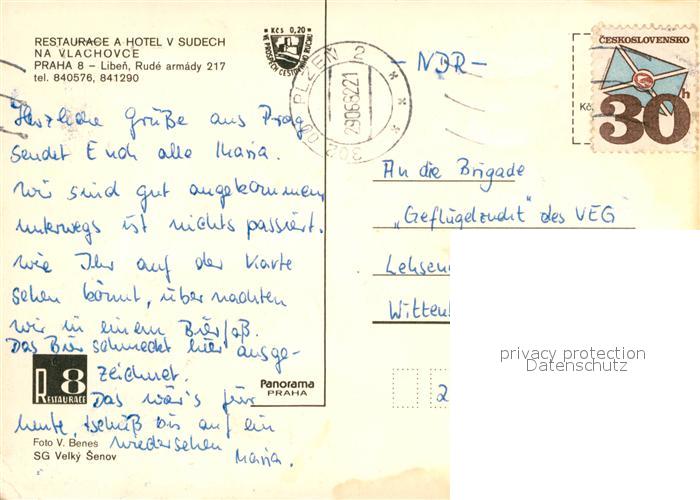 RESTAURACE A HOTEL V SUDECH
NA VLACHOVCE
PRAHA 8 – Libeň, Rudé armády 217
tel. 840576, 841290
Kčs 0,20
VE PROSPĚCH CESTOVNÍHO RUCHU
Herzliche Grüße aus Prag
sendet Euch alle Maria.
Wir sind gut angekommen,
unterwegs ist nichts passiert.
Wie Ihr auf der Karte
sehen könnt, übernachten
wir in einem Bierfaß.
Das Bier schmeckt hier ausge-
zeichnet.
Das wär's für
heute, tschüß bis auf ein
wiedersehen
Maria.
R 8
RESTAURACE
Panorama
PRAHA
Foto V. Beneš
SG Velký Šenov
PLZEŇ 2
29068221
302 00
ČESKOSLOVENSKO
30h
Kč
- NDR -
An die Brigade
„Geflügelzucht" des VEG
Wittenb
2
privacy protection
Datenschutz